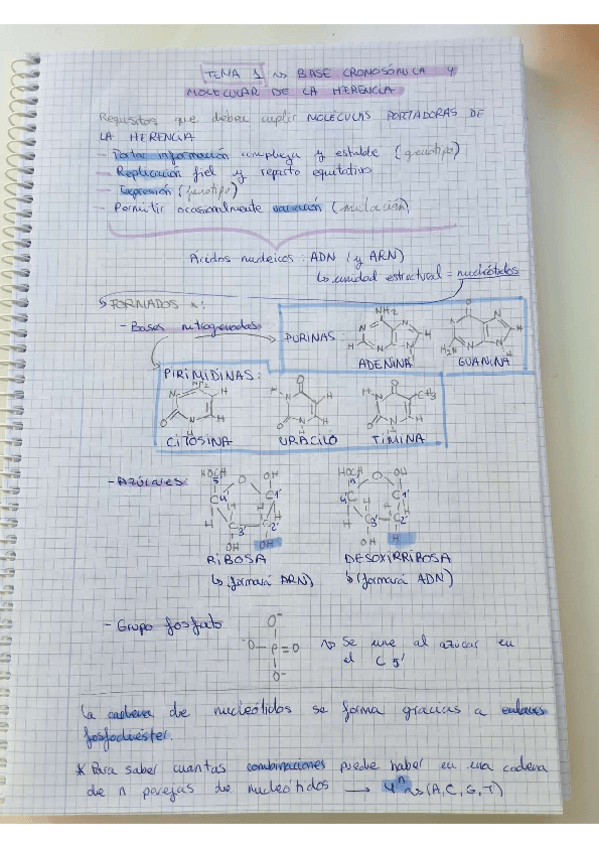 TEMA 1 ~> BASE CROMOSÓMICA Y
MOLECULAR DE LA HERENCIA
Requisitos que deben cumplir MOLÉCULAS PORTADORAS DE
LA HERENCIA
- Portar información compleja y estable (genotipo)
- Replicación fiel y reparto equitativo
- Expresión (fenotipo)
- Permitir ocasionalmente variación (mutación)
Ácidos nucleicos: ADN (y ARN)
↳ unidad estructural = nucleótidos
↳ FORMADOS x:
- Bases nitrogenadas
PURINAS
NH2
N
N
N
N
H
H
H
ADENINA
O
N
N
N
N
H2N
H
H
GUANINA
PIRIMIDINAS:
NH2
N
H
H
O
N
H
CITOSINA
O
H
N
H
H
O
N
H
URACILO
O
H
N
CH3
H
O
N
H
TIMINA
- Azúcares:
HOCH
5'
O
OH
C4'
C1'
H
H
H
C3'
C2'
OH
OH
RIBOSA
↳ (formará ARN)
HOCH
5'
O
OH
4'C
C1'
H
H
H
C3'
C2'
OH
H
DESOXIRRIBOSA
↳ (formará ADN)
- Grupo fosfato
O-
-O-P=O
O-
~> Se une al azúcar en
el C 5'
La cadena de nucleótidos se forma gracias a enlaces
fosfodiéster.
* Para saber cuantas combinaciones puede haber en una cadena
de n parejas de nucleótidos → 4^n ~> (A, C, G, T)